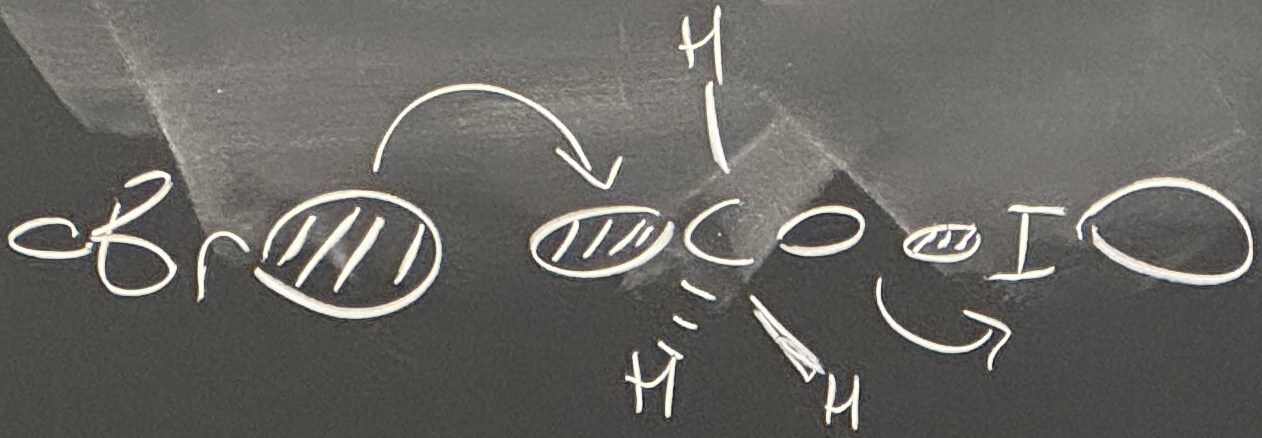 H
Br C I
H H